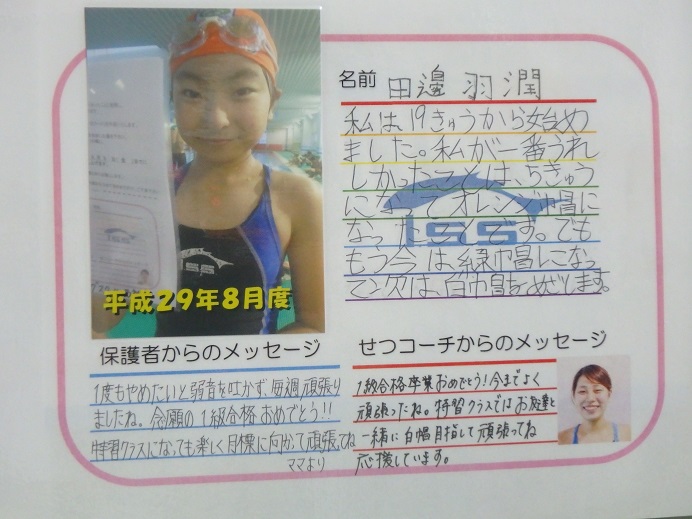 平成29年8月度
名前 田邊 羽潤
私は、19きゅうから始め
ました。私が一番うれ
しかったことは、5きゅう
になってオレンジ帽に
なったことです。でも
もう今は緑帽になっ
て次は、白帽をめざします。
ISS
ISS
保護者からのメッセージ
1度もやめたいと弱音を吐かず、毎週頑張り
ましたね。念願の1級合格おめでとう!!
特習クラスになっても楽しく目標に向かって頑張ってね
ママより
せつコーチからのメッセージ
1級合格卒業おめでとう!今までよく
頑張ったね。特習クラスではお友達と
一緒に白帽目指して頑張ってね
応援しています。